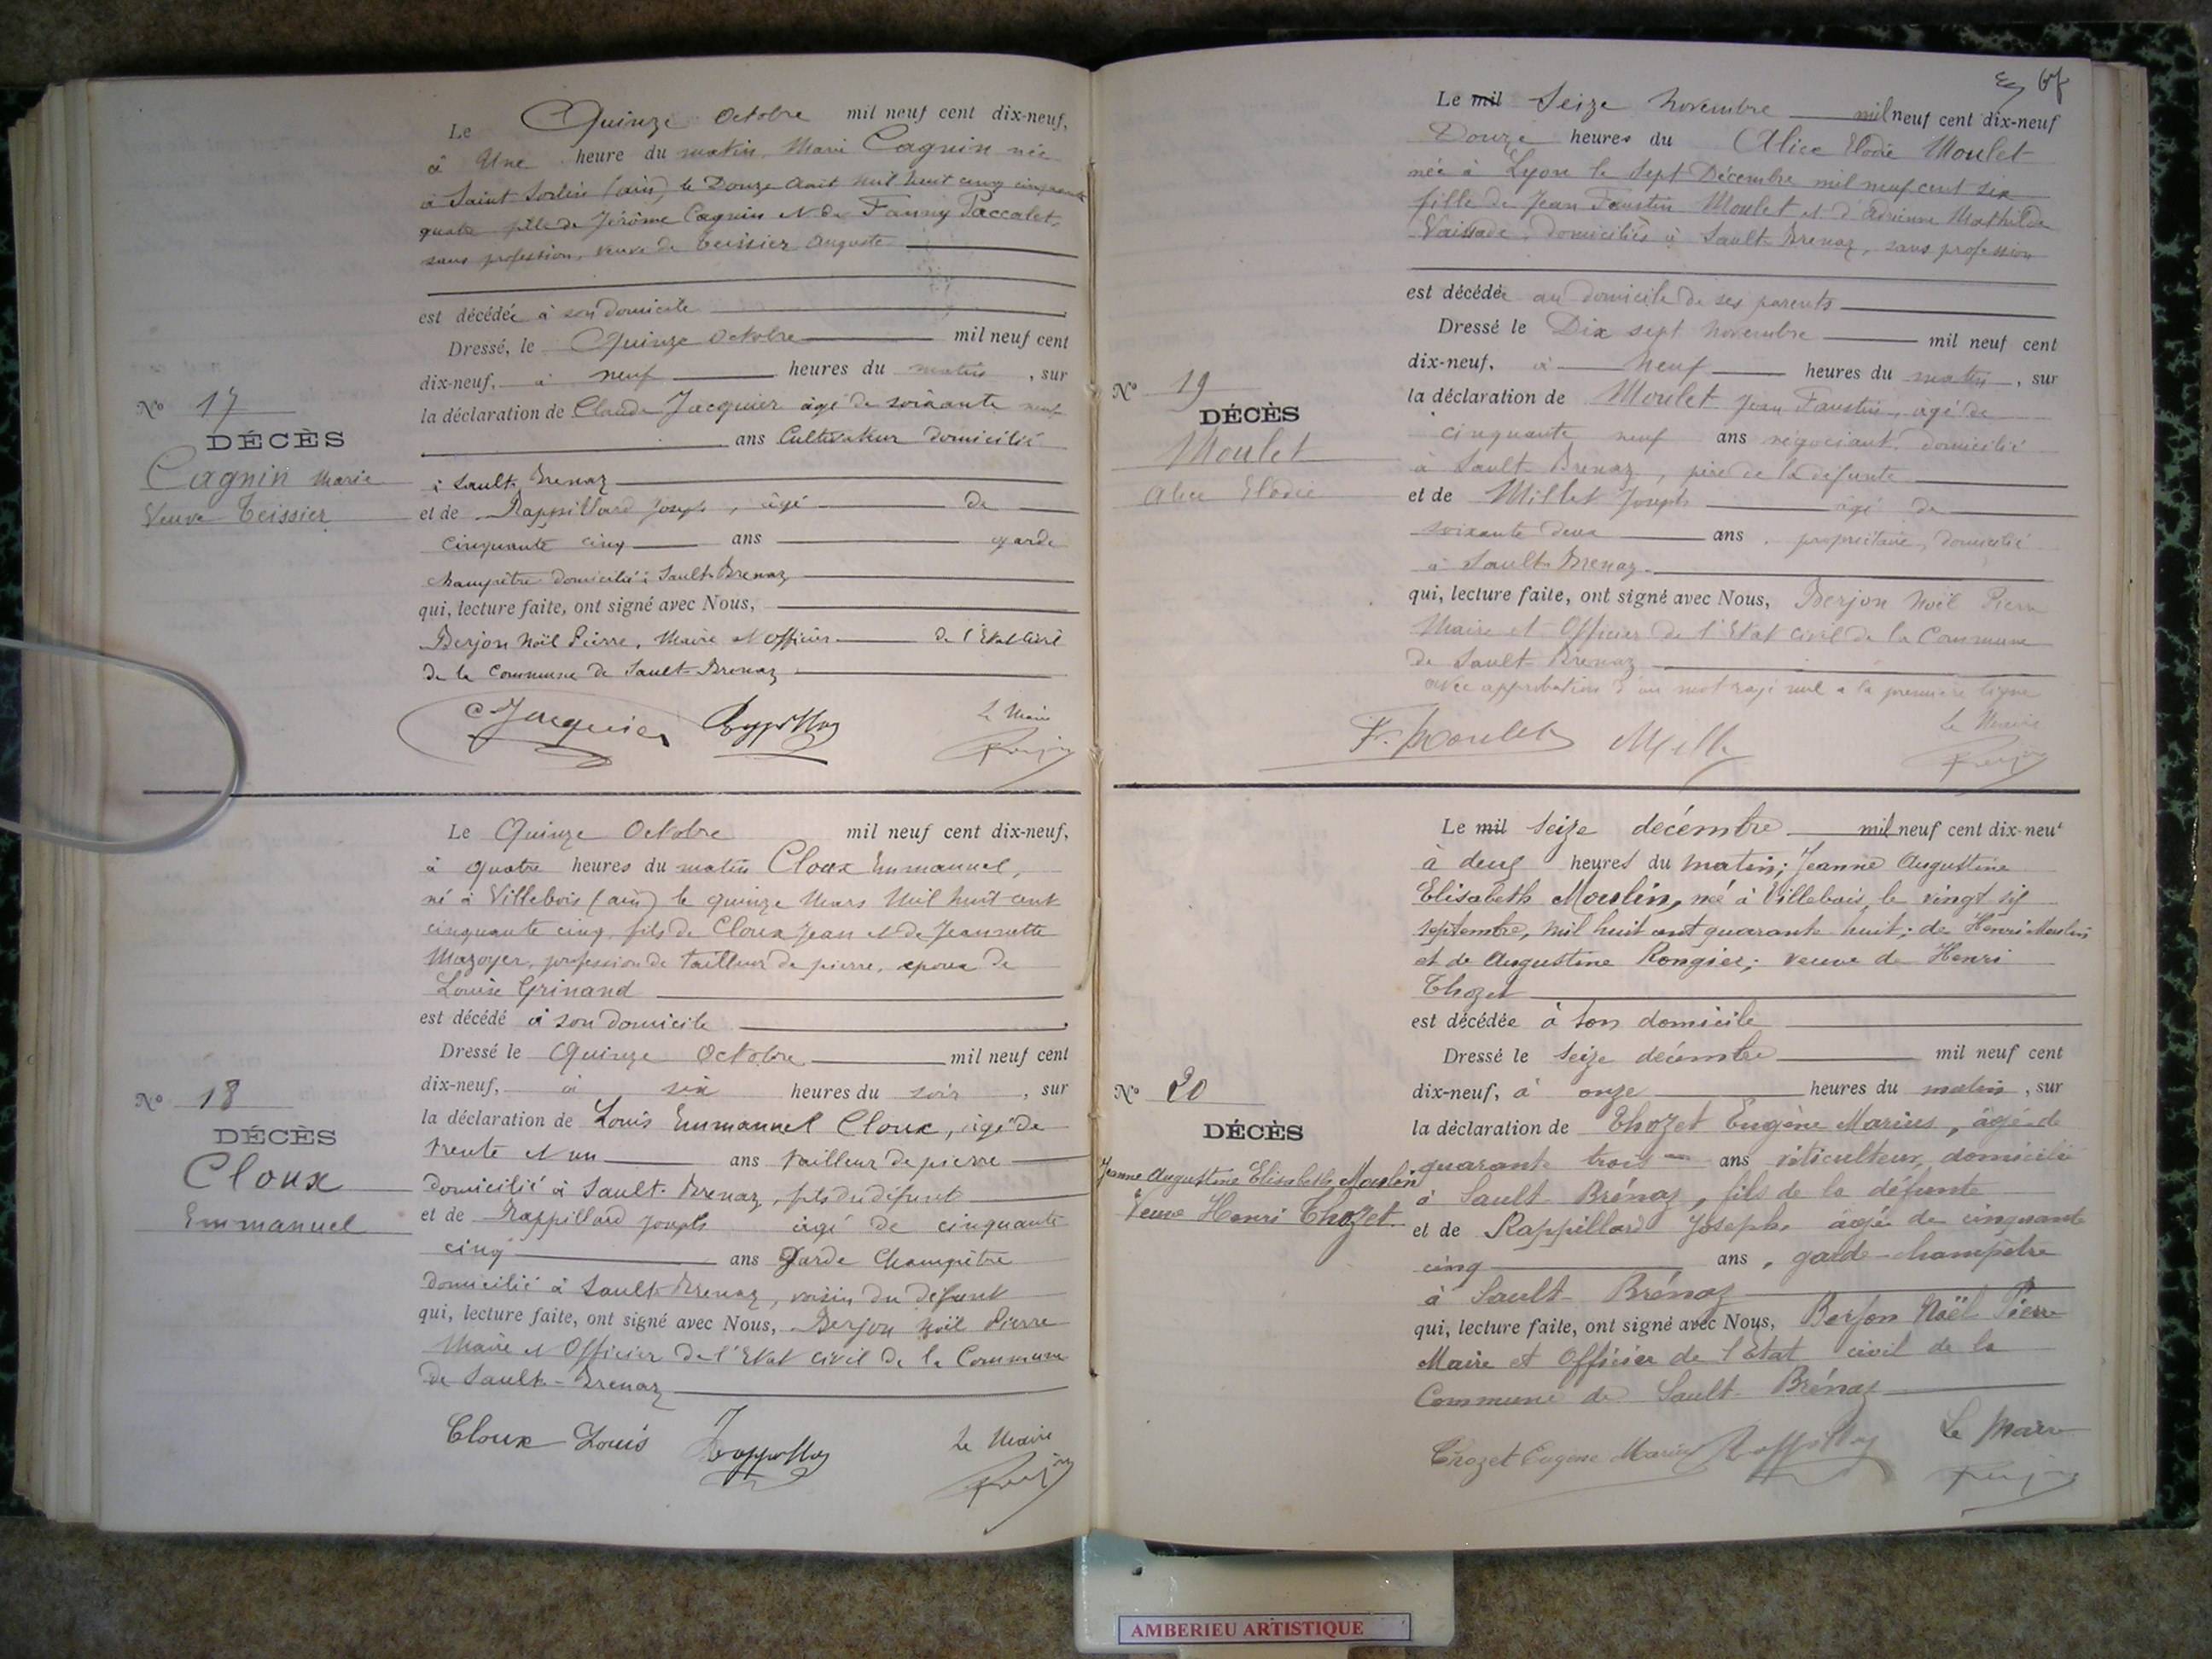 Le Quinze Octobre mil neuf cent dix-neuf,
à Une heure du matin, Marie Cagnin née
à Saint Sorlin (ain) le Douze Août mil huit cent cinquante
quatre fille de Jérôme Cagnin et de Fanny Paccalet,
sans profession, veuve de Teissier Auguste
est décédée à son domicile
Dressé, le Quinze Octobre mil neuf cent
dix-neuf, à neuf heures du matin, sur
la déclaration de Claude Jacquier âgé de soixante neuf
ans Cultivateur domicilié
à Sault-Brenaz
et de Rappillard Joseph, âgé de
cinquante cinq ans garde
champêtre domicilié à Sault-Brenaz
qui, lecture faite, ont signé avec Nous,
Berjon Noël Pierre, Maire et Officier de l'Etat Civil
de la Commune de Sault-Brenaz
C Jacquier Rappillard Le Maire
Berjon
N° 17
DÉCÈS
Cagnin Marie
Veuve Teissier
Le Quinze Octobre mil neuf cent dix-neuf,
à quatre heures du matin Cloux Emmanuel,
né à Villebois (ain) le quinze Mars Mil huit cent
cinquante cinq, fils de Cloux Jean et de Jeannette
Mazoyer, profession de tailleur de pierre, époux de
Louise Grinand
est décédé à son domicile
Dressé le Quinze Octobre mil neuf cent
dix-neuf, à six heures du soir, sur
la déclaration de Louis Emmanuel Cloux, âgé de
trente et un ans tailleur de pierre
domicilié à Sault-Brenaz, fils du défunt
et de Rappillard Joseph âgé de cinquante
cinq ans Garde Champêtre
domicilié à Sault-Brenaz, voisin du défunt
qui, lecture faite, ont signé avec Nous, Berjon Noël Pierre
Maire et Officier de l'Etat civil de la Commune
de Sault-Brenaz
Cloux Louis Rappillard Le Maire
Berjon
N° 18
DÉCÈS
Cloux
Emmanuel
67
Le mil Seize Novembre mil neuf cent dix-neuf
Douze heures du Alice Elodie Moulet
née à Lyon le Sept Décembre mil neuf cent six
fille de Jean Faustin Moulet et d'Adrienne Mathilde
Vaissade, domiciliés à Sault-Brenaz, sans profession
est décédée au domicile de ses parents
Dressé le Dix sept Novembre mil neuf cent
dix-neuf, à Neuf heures du matin, sur
la déclaration de Moulet Jean Faustin, âgé de
cinquante neuf ans négociant domicilié
à Sault-Brenaz, père de la défunte
et de Millet Joseph âgé de
soixante deux ans, propriétaire, domicilié
à Sault-Brenaz
qui, lecture faite, ont signé avec Nous, Berjon Noël Pierre
Maire et Officier de l'Etat civil de la Commune
de Sault-Brenaz
avec approbation d'un mot rayé nul à la première ligne
F. Moulet Millet Le Maire
Berjon
N° 19
DÉCÈS
Moulet
Alice Elodie
Le mil Seize décembre mil neuf cent dix-neuf
à deux heures du matin; Jeanne Augustine
Elisabeth Moulin, née à Villebois, le vingt six
septembre, mil huit cent quarante huit; de Henri Moulin
et de Augustine Rongier; veuve de Henri
Thozet
est décédée à son domicile
Dressé le Seize décembre mil neuf cent
dix-neuf, à onze heures du matin, sur
la déclaration de Thozet Eugène Marius, âgé de
quarante trois ans viticulteur, domicilié
à Sault-Brénaz, fils de la défunte
et de Rappillard Joseph, âgé de cinquante
cinq ans, garde-champêtre
à Sault-Brénaz
qui, lecture faite, ont signé avec Nous, Berjon Noël Pierre
Maire et Officier de l'Etat civil de la
Commune de Sault-Brénaz
Thozet Eugene Marius Rappillard Le Maire
Berjon
N° 20
DÉCÈS
Jeanne Augustine Elisabeth Moulin
Veuve Henri Thozet
AMBERIEU ARTISTIQUE